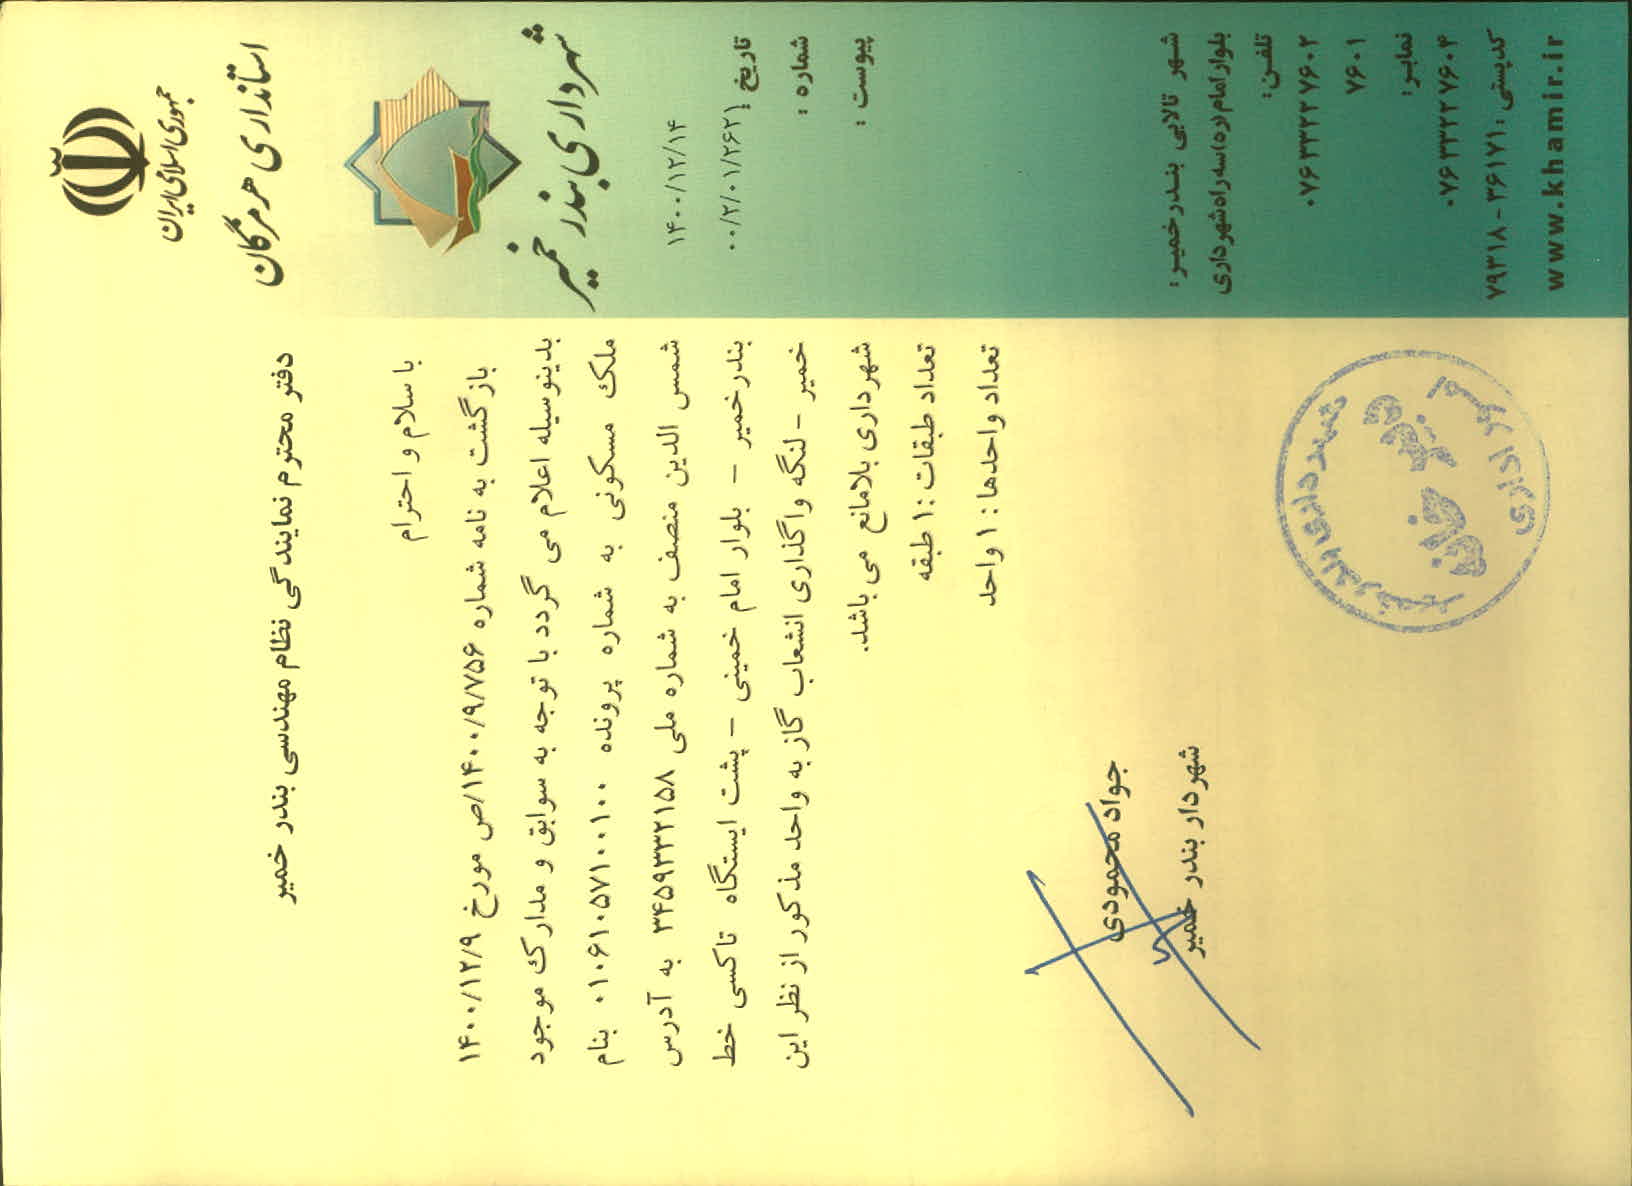 جمهوری اسلامی ایران
استانداری هرمزگان
شهرداری بندر خمیر
تاریخ :
۱۴۰۰/۱۲/۱۴
شماره :
۰۰/۲/۰۱/۲۶۲۱
پیوست :
دفتر محترم نمایندگی نظام مهندسی بندر خمیر
با سلام و احترام
بازگشت به نامه شماره ۱۴۰۰/۹/۷۵۶/ص مورخ ۱۴۰۰/۱۲/۹
بدینوسیله اعلام می گردد با توجه به سوابق و مدارک موجود
ملک مسکونی به شماره پرونده ۰۱۰۶۱۰۵۷۱۰۰۱۰۰ بنام
شمس الدین منصف به شماره ملی ۳۴۵۹۳۳۲۱۵۸ به آدرس
بندرخمیر - بلوار امام خمینی - پشت ایستگاه تاکسی خط
خمیر - لنگه واگذاری انشعاب گاز به واحد مذکور از نظر این
شهرداری بلامانع می باشد.
تعداد طبقات :۱ طبقه
تعداد واحدها : ۱ واحد
جواد محمودی
شهردار بندر خمیر
شهرداری بندر خمیر
امور اداری
شهر تالابی بندرخمیـر :
بلوار امام(ره)سه راه شهرداری
تلفـن:
۰۷۶۳۳۲۲۷۶۰۲
۷۶۰۱
نمابـر:
۰۷۶۳۳۲۲۷۶۰۴
کدپستی : ۳۶۱۷۱ - ۷۹۳۱۸
www.khamir.ir